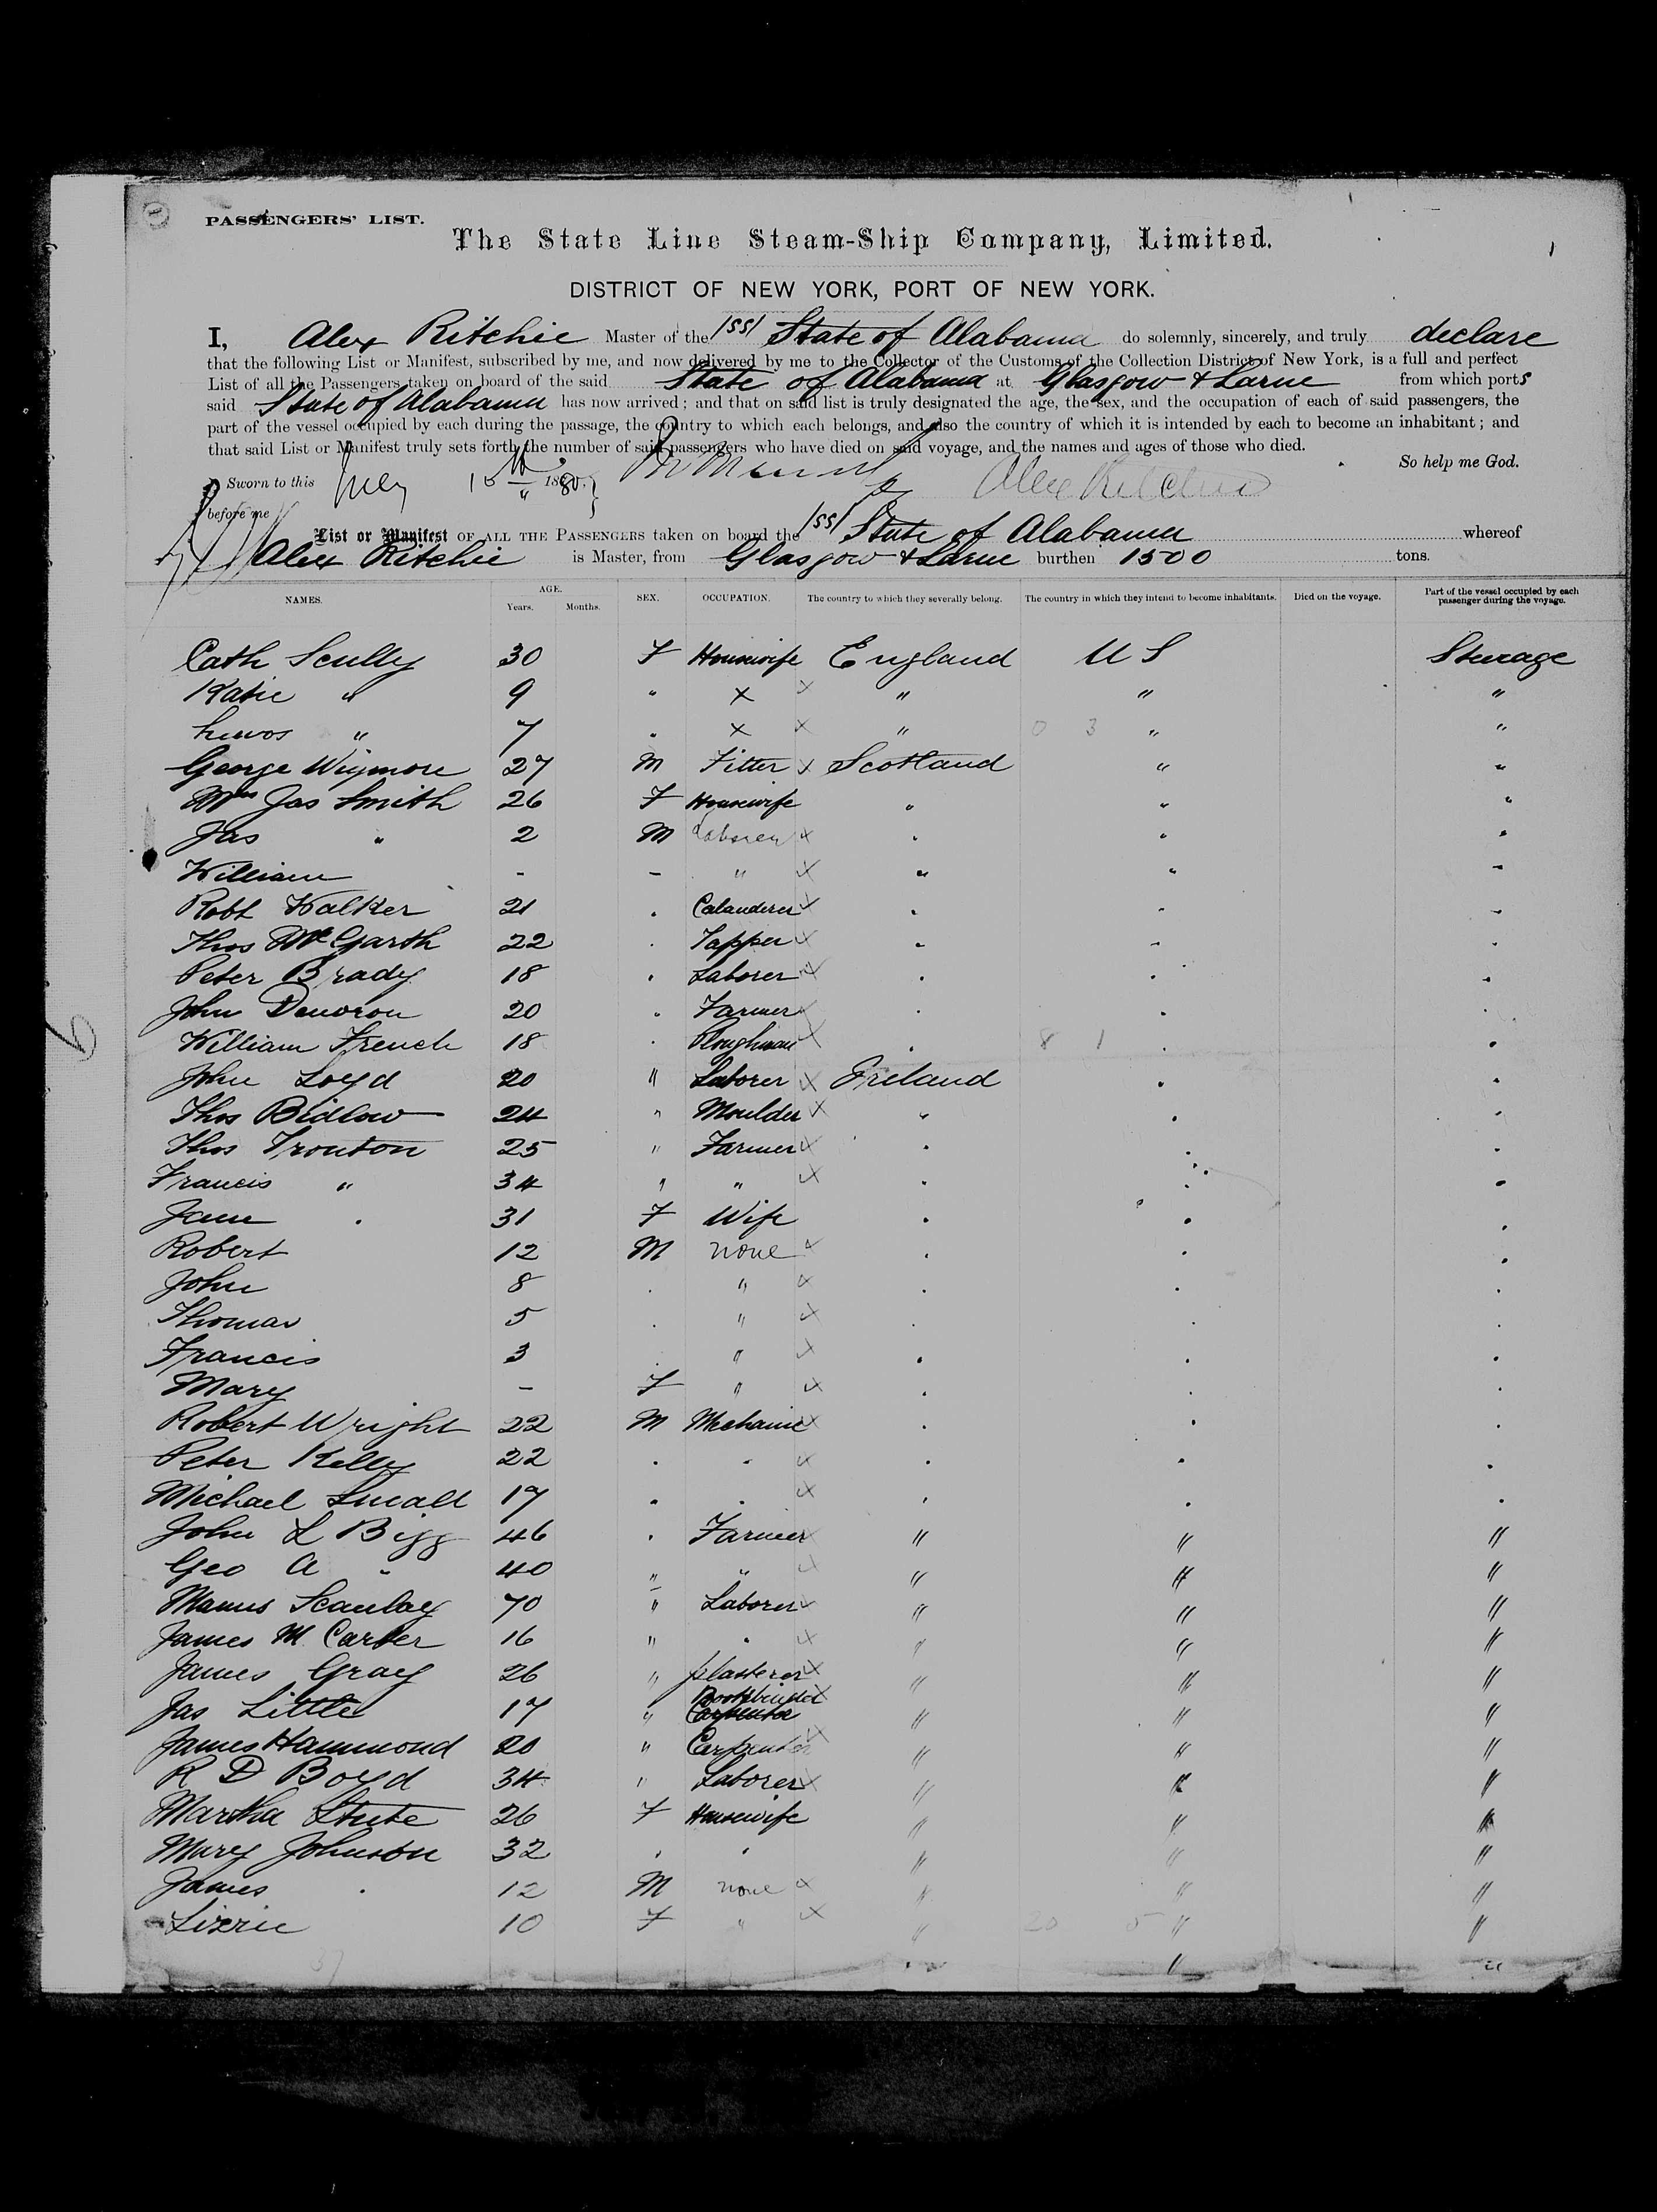 PASSENGERS' LIST.
1
The State Line Steam-Ship Company, Limited.
DISTRICT OF NEW YORK, PORT OF NEW YORK.
I, Alex Ritchie Master of the SS State of Alabama do solemnly, sincerely, and truly declare
that the following List or Manifest, subscribed by me, and now delivered by me to the Collector of the Customs of the Collection District of New York, is a full and perfect
List of all the Passengers taken on board of the said State of Alabama at Glasgow & Larne from which ports
said State of Alabama has now arrived; and that on said list is truly designated the age, the sex, and the occupation of each of said passengers, the
part of the vessel occupied by each during the passage, the country to which each belongs, and also the country of which it is intended by each to become an inhabitant; and
that said List or Manifest truly sets forth the number of said passengers who have died on said voyage, and the names and ages of those who died.
So help me God.
Sworn to this July 1880. Alex Ritchie
before me
List or Manifest OF ALL THE PASSENGERS taken on board the SS State of Alabama whereof
Alex Ritchie is Master, from Glasgow & Larne burthen 1500 tons.
NAMES. AGE. Years. Months. SEX. OCCUPATION. The country to which they severally belong. The country in which they intend to become inhabitants. Died on the voyage. Part of the vessel occupied by each passenger during the voyage.
Cath Scully 30 F Housewife England U S Steerage
Katie " 9 " x x " " "
" 7 " x x " 0 3 " "
George Wigmore 27 M Fitter x Scotland " "
Mrs Jas Smith 26 F Housewife " " "
Jas " 2 M Laborer x " " "
William - - " x " " "
Robt Walker 21 " Calanderer x " " "
Thos McGarth 22 " Sapper x " " "
Peter Brady 18 " Laborer x " " "
John 20 " Farmer x " " "
William French 18 " Ploughman x " 8 1 " "
John Loyd 20 " Laborer x Ireland " "
Thos Bidlow 24 " Moulder x " " "
Thos Tronton 25 " Farmer x " " "
Francis " 34 " " x " " "
Jane " 31 F Wife " " "
Robert 12 M none x " " "
John 8 " " x " " "
Thomas 5 " " x " " "
Francis 3 " " x " " "
Mary - F " x " " "
Robert Wright 22 M Mechanic x " " "
Peter Kelly 22 " " x " " "
Michael Small 17 " " x " " "
John L Bigg 46 " Farmer x " " "
Geo A " 40 " " x " " "
Manus Scanlay 70 " Laborer x " " "
James M Carter 16 " " x " " "
James Gray 26 " plasterer x " " "
Jas Little 17 " Bookbinder x Carpenter " " "
James Hammond 20 " Carpenter x " " "
R D Boyd 34 " Laborer x " " "
Martha Stute 26 F Housewife " " "
Mary Johnston 32 " " " " "
James " 12 M none x " " "
Lizzie 10 F " x " 20 5 " "
37 " " "